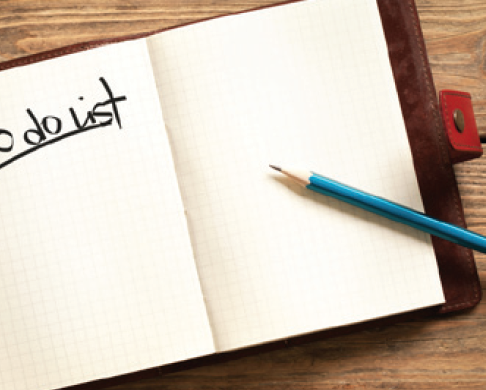 o do list